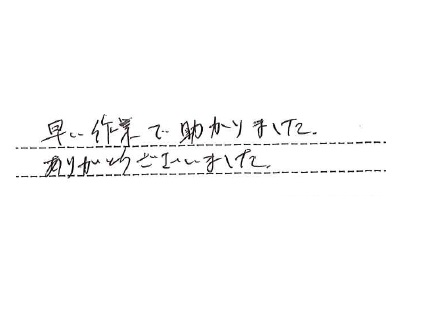 早い作業で助かりました.
ありがとうございました.